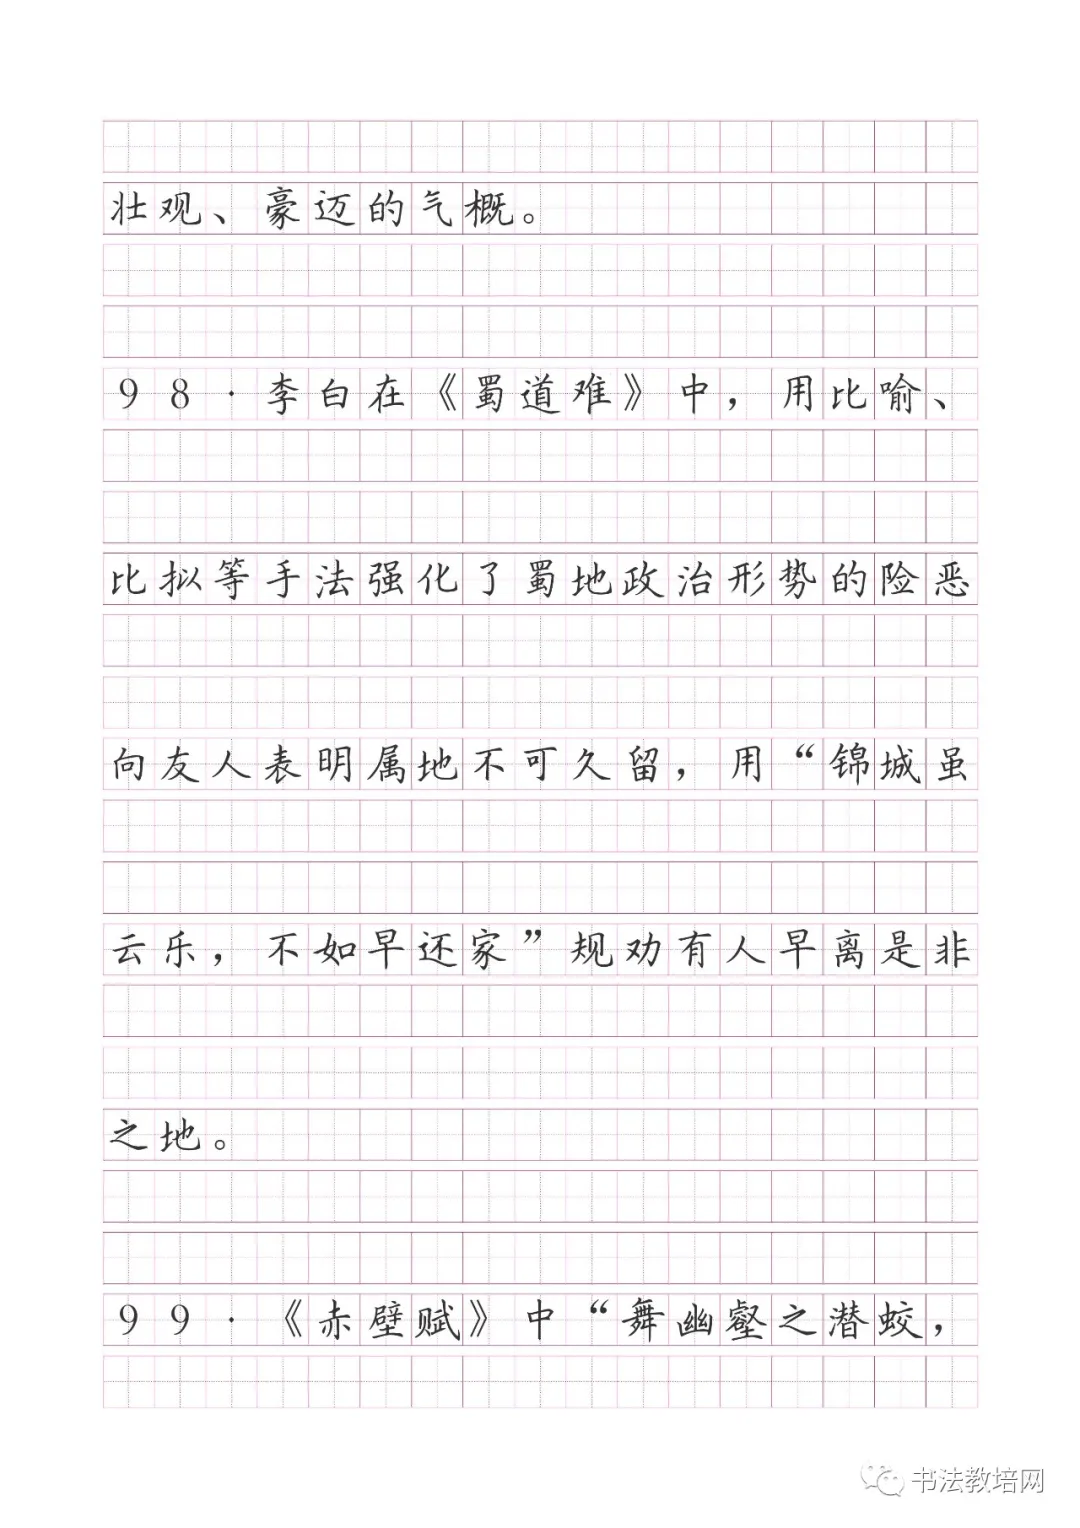 壮观、豪迈的气概。
98·李白在《蜀道难》中，用比喻、
比拟等手法强化了蜀地政治形势的险恶
向友人表明属地不可久留，用“锦城虽
云乐，不如早还家”规劝有人早离是非
之地。
99·《赤壁赋》中“舞幽壑之潜蛟，
书法教培网